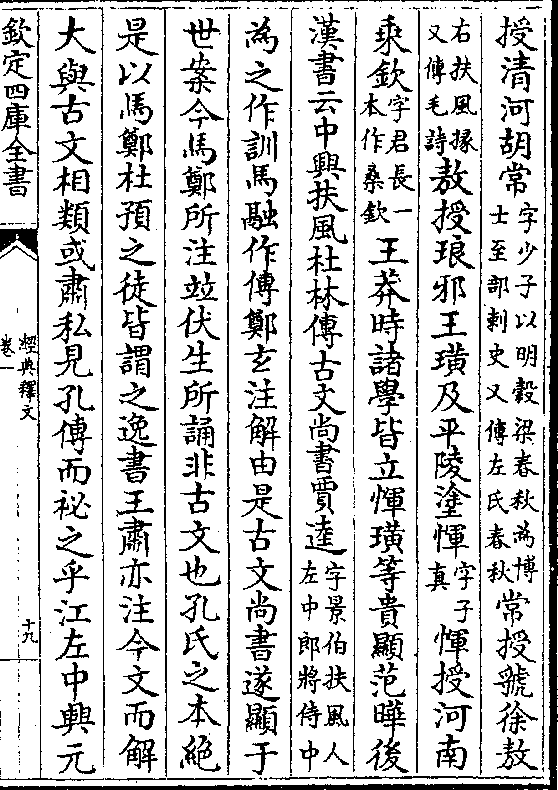 授清河胡常字少子以明穀梁春秋為博士至部刺史又傳左氏春秋常授虢徐敖
右扶風掾又傳毛詩敖授琅邪王璜及平陵塗惲字子真惲授河南
乘欽字君長一本作桑欽王莽時諸學皆立惲璜等貴顯范曄後
漢書云中興扶風杜林傳古文尚書賈逵字景伯扶風人左中郎將侍中
為之作訓馬融作傳鄭玄注解由是古文尚書遂顯于
世案今馬鄭所注竝伏生所誦非古文也孔氏之本絶
是以馬鄭杜預之徒皆謂之逸書王肅亦注今文而解
大與古文相類或肅私見孔傳而祕之乎江左中興元
欽定四庫全書
經典釋文
卷一
十九